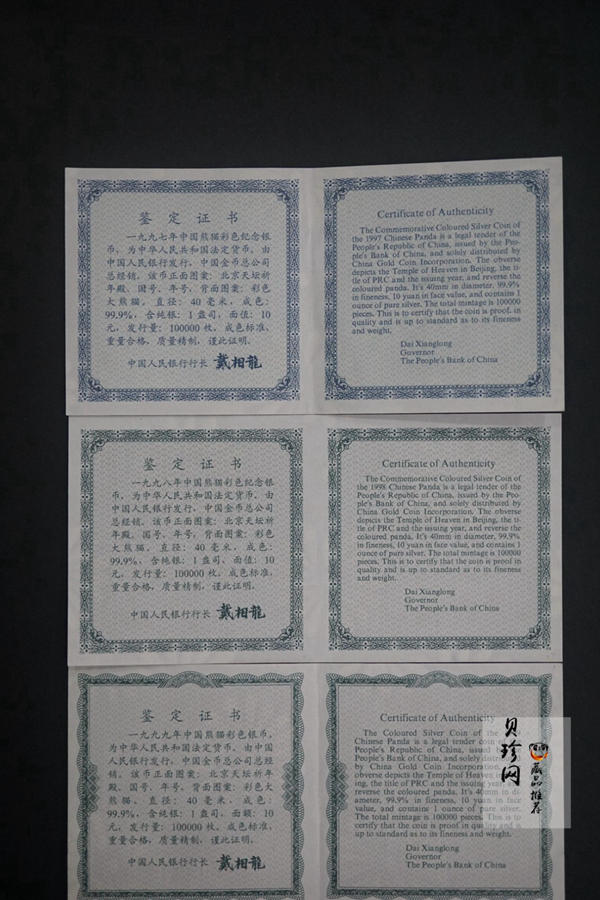 鉴定证书
一九九七年中国熊猫彩色纪念银
币，为中华人民共和国法定货币，由
中国人民银行发行，中国金币总公司
总经销。该币正面图案：北京天坛祈
年殿、国号、年号，背面图案：彩色
大熊猫。直径：40毫米，成色：
99.9%，含纯银：1盎司，面值：10
元，发行量：100000枚。成色标准，
重量合格，质量精制，谨此证明。
中国人民银行行长 戴相龍
Certificate of Authenticity
The Commemorative Coloured Silver Coin of
the 1997 Chinese Panda is a legal tender of the
People's Republic of China, issued by the Peo-
ple's Bank of China, and solely distributed by
China Gold Coin Incorporation. The obverse
depicts the Temple of Heaven in Beijing, the ti-
tle of PRC and the issuing year, and reverse the
coloured panda. It's 40mm in diameter, 99.9%
in fineness, 10 yuan in face value, and contains 1
ounce of pure silver. The total mintage is 100000
pieces. This is to certify that the coin is proof, in
quality and is up to standard as to its fineness
and weight.
Dai Xianglong
Governor
The People's Bank of China
鉴定证书
一九九八年中国熊猫彩色纪念银
币，为中华人民共和国法定货币，由
中国人民银行发行，中国金币总公司
总经销。该币正面图案：北京天坛祈
年殿、国号、年号，背面图案：彩色
大熊猫。直径：40毫米，成色：
99.9%，含纯银：1盎司，面值：10
元，发行量：100000枚。成色标准，
重量合格，质量精制，谨此证明。
中国人民银行行长 戴相龍
Certificate of Authenticity
The Commemorative Coloured Silver Coin of
the 1998 Chinese Panda is a legal tender of the
People's Republic of China, issued by the Peo-
ple's Bank of China, and solely distributed by
China Gold Coin Incorporation. The obverse
depicts the Temple of Heaven in Beijing, the ti-
tle of PRC and the issuing year, and reverse the
coloured panda. It's 40mm in diameter, 99.9%
in fineness, 10 yuan in face value, and contains 1
ounce of pure silver. The total mintage is 100000
pieces. This is to certify that the coin is proof in
quality and is up to standard as to its fineness
and weight.
Dai Xianglong
Governor
The People's Bank of China
鉴定证书
一九九九年中国熊猫彩色银币，
为中华人民共和国法定货币，由中国
人民银行发行，中国金币总公司总经
销。该币正面图案：北京天坛祈年
殿、国号、年号，背面图案：彩色大
熊猫。直径：40毫米，成色：
99.9%，含纯银：1盎司，面额：10
元，发行量：100000枚。成色标准，
重量合格，质量精制，谨此证明。
中国人民银行行长 戴相龍
Certificate of Authenticity
The Coloured Silver Coin of the
Chinese Panda is a legal tender
People's Republic of China, and solely
by China Gold Coin Incorporation.
obverse depicts the Temple of Heaven
ing, the title of PRC and the issuing year,
reverse the coloured panda. It's 40mm in di-
ameter, 99.9% in fineness, 10 yuan in face
value, and contains 1 ounce of pure silver.
The total mintage is 100000 pieces. This is to
certify that the coin is proof in quality and is
up to standard as to its fineness and weight.
Dai Xianglong
Governor
The People's Bank of China
贝珍网
藏品推荐